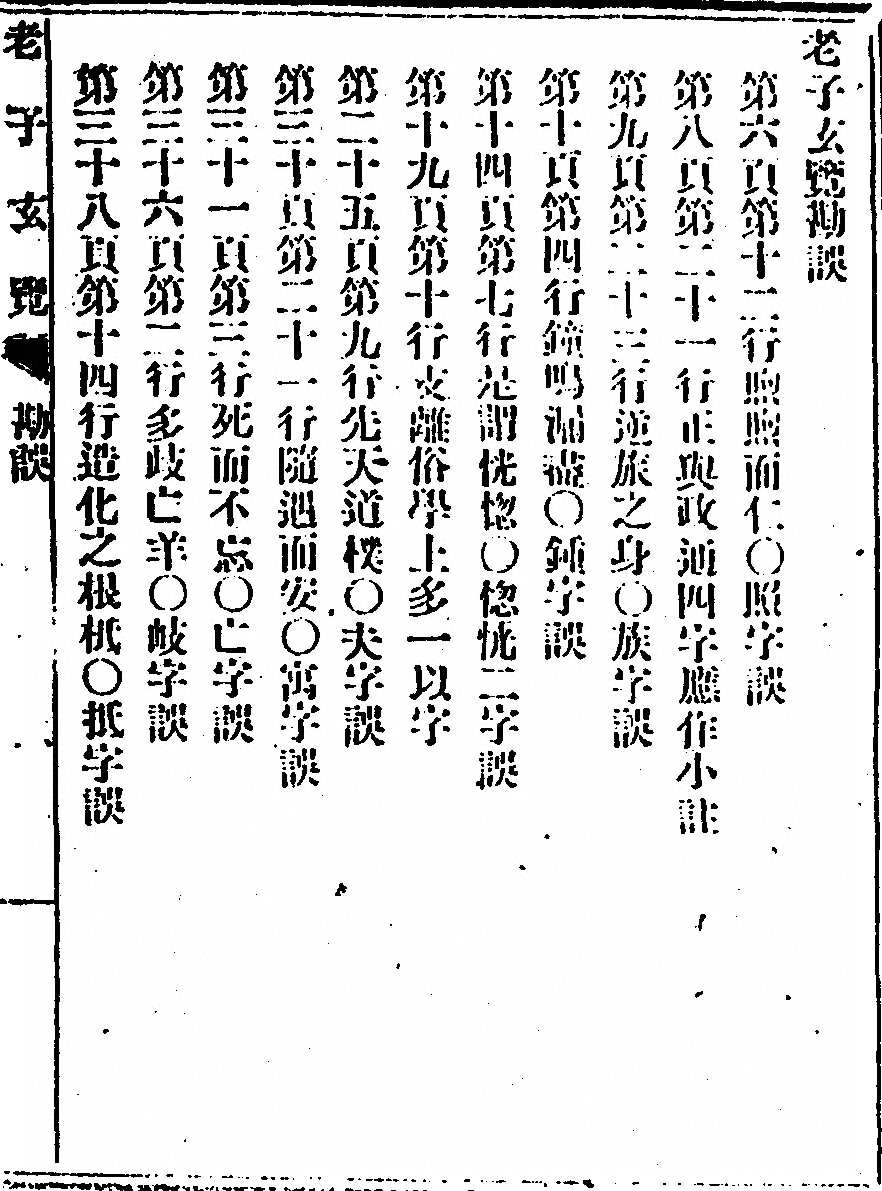 老子玄覽勘誤
第六頁第十二行煦煦而仁〇照字誤
第八頁第二十一行正與政通四字應作小註
第九頁第二十三行逆旅之身〇族字誤
第十頁第四行鐘鳴漏盡〇鍾字誤
第十四頁第七行是謂恍惚〇惚恍二字誤
第十九頁第十行支離俗學上多一以字
第二十五頁第九行先天道樸〇夫字誤
第三十頁第二十一行隨遇而安〇寓字誤
第三十一頁第三行死而不忘〇亡字誤
第三十六頁第二行多歧亡羊〇岐字誤
第三十八頁第十四行造化之根柢〇抵字誤
老子玄覽 勘誤